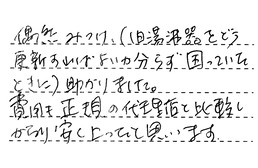 偶然みつけ、(旧湯沸器をどう
更新すればよいか分らず困っていた
ときに)助かりました。
費用も正規の代理店と比較し
かなり安く上ったと思います。